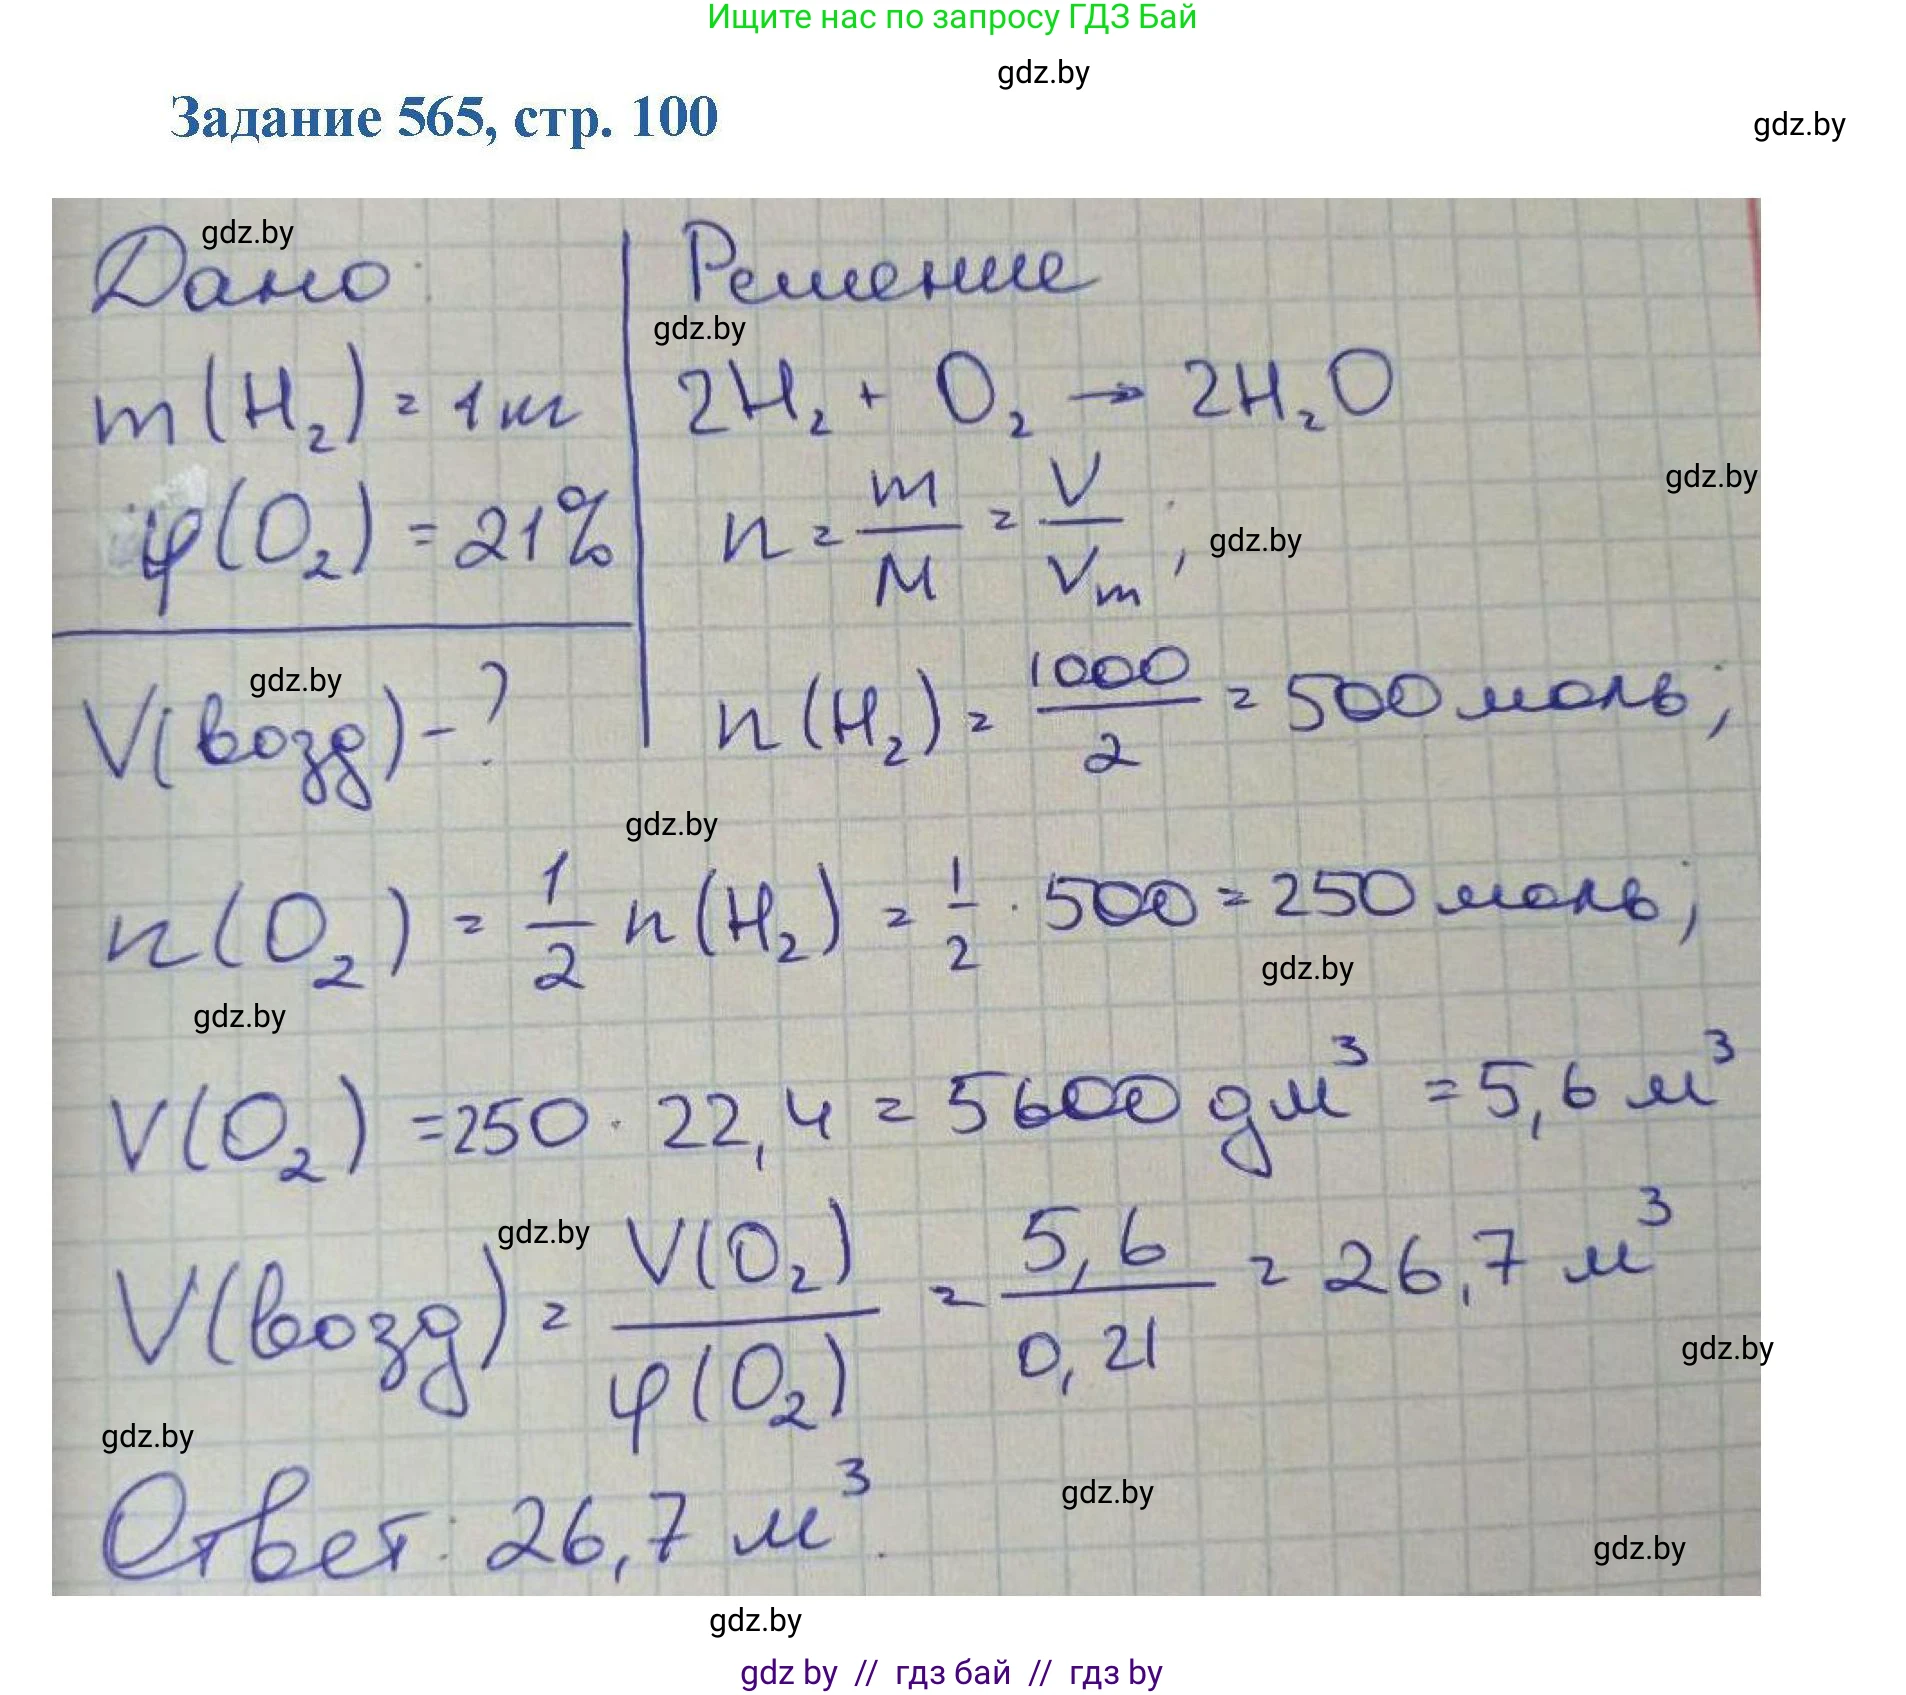 Ищите нас по запросу ГДЗ Бай
gdz.by
Задание 565, стр. 100
gdz.by
gdz.by
Дано:
Решение
gdz.by
m(H₂) = 1 кг
2H₂ + O₂ → 2H₂O
gdz.by
φ(O₂) = 21%
n = m/M = V/Vm ;
gdz.by
gdz.by
V(возд) - ?
n(H₂) = 1000/2 = 500 моль;
gdz.by
n(O₂) = 1/2 n(H₂) = 1/2 · 500 = 250 моль;
gdz.by
gdz.by
V(O₂) = 250 · 22,4 = 5600 дм³ = 5,6 м³
gdz.by
V(возд) = V(O₂)/φ(O₂) = 5,6/0,21 = 26,7 м³
gdz.by
gdz.by
Ответ: 26,7 м³.
gdz.by
gdz.by
gdz.by
gdz by // гдз бай // гдз by